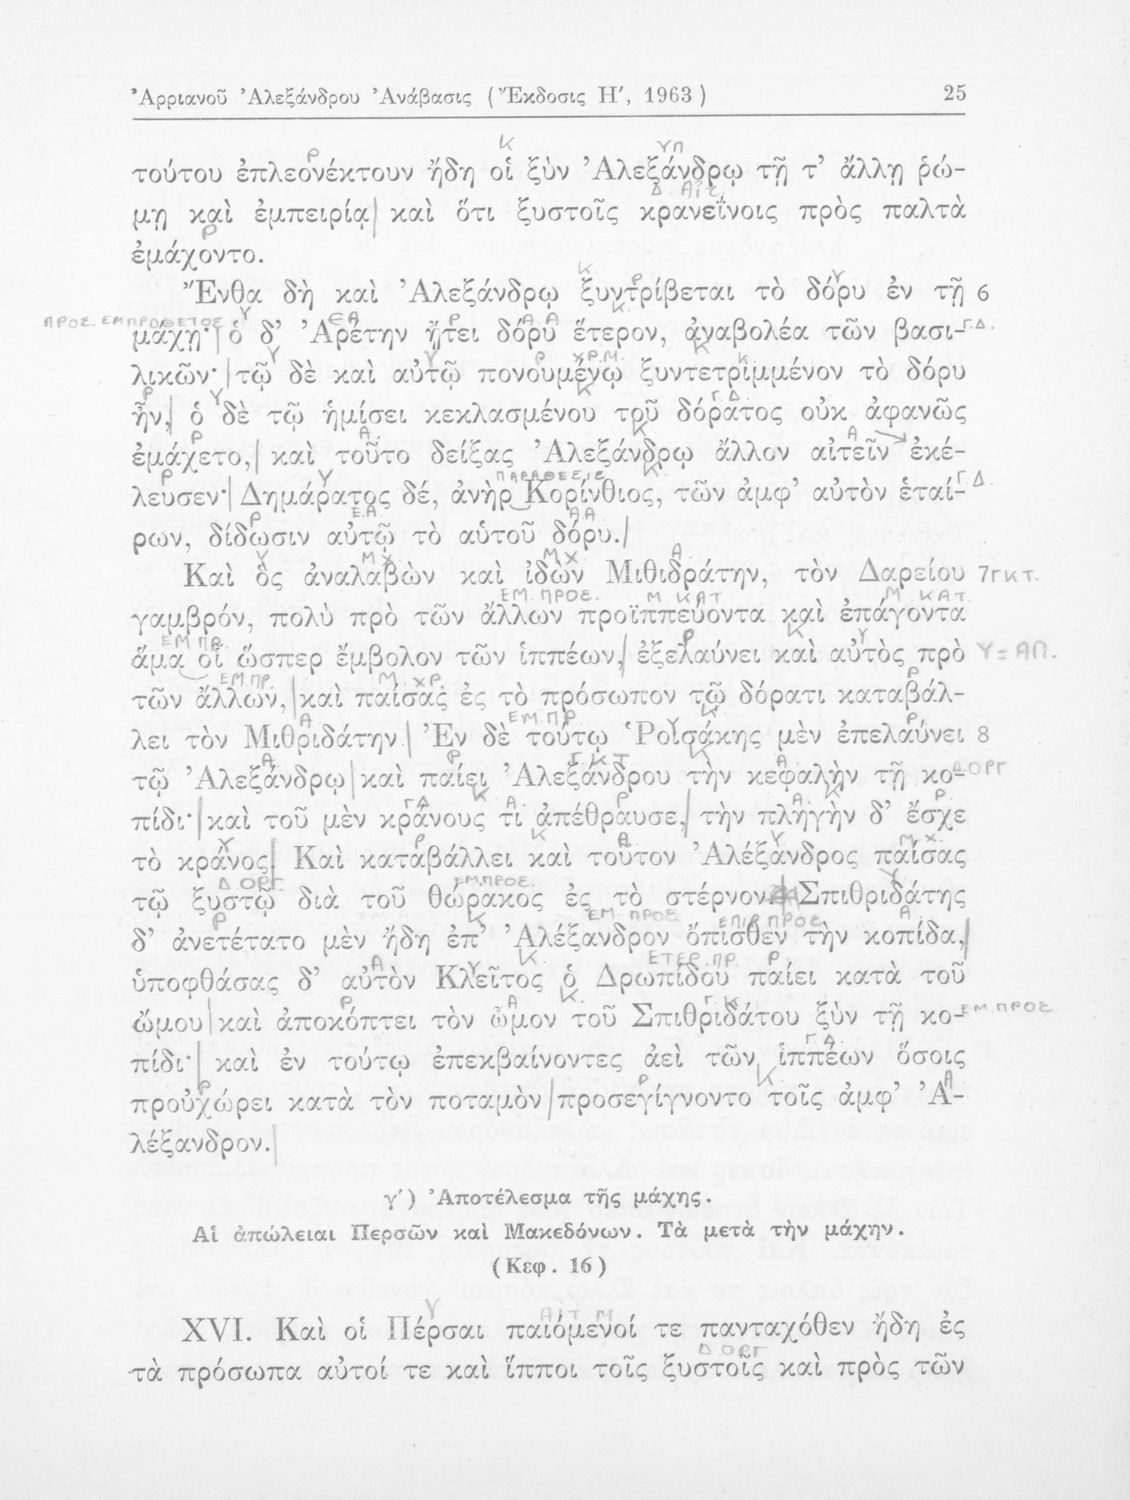 Ἀρριανοῦ Ἀλεξάνδρου Ἀνάβασις (Ἔκδοσις Η′, 1963) 25
τούτου ἐπλεονέκτουν ἤδη οἱ ξὺν Ἀλεξάνδρῳ τῇ τ’ ἄλλῃ ῥώ-
μῃ καὶ ἐμπειρίᾳ καὶ ὅτι ξυστοῖς κρανεΐνοις πρὸς παλτὰ
ἐμάχοντο.
Ἔνθα δὴ καὶ Ἀλεξάνδρῳ ξυντρίβεται τὸ δόρυ ἐν τῇ 6
μάχῃ· ὁ δ’ Ἀρέτην ᾔτει δόρυ ἕτερον, ἀναβολέα τῶν βασι-
λικῶν· τῷ δὲ καὶ αὐτῷ πονουμένῳ ξυντετριμμένον τὸ δόρυ
ἦν, ὁ δὲ τῷ ἡμίσει κεκλασμένου τοῦ δόρατος οὐκ ἀφανῶς
ἐμάχετο, καὶ τοῦτο δείξας Ἀλεξάνδρῳ ἄλλον αἰτεῖν ἐκέ-
λευσεν· Δημάρατος δέ, ἀνὴρ Κορίνθιος, τῶν ἀμφ’ αὐτὸν ἑταί-
ρων, δίδωσιν αὐτῷ τὸ αὑτοῦ δόρυ.
Καὶ ὃς ἀναλαβὼν καὶ ἰδὼν Μιθιδράτην, τὸν Δαρείου 7
γαμβρόν, πολὺ πρὸ τῶν ἄλλων προϊππεύοντα καὶ ἐπάγοντα
ἅμα οἷ ὥσπερ ἔμβολον τῶν ἱππέων, ἐξελαύνει καὶ αὐτὸς πρὸ
τῶν ἄλλων, καὶ παίσας ἐς τὸ πρόσωπον τῷ δόρατι καταβάλ-
λει τὸν Μιθριδάτην. Ἐν δὲ τούτῳ Ῥοισάκης μὲν ἐπελαύνει 8
τῷ Ἀλεξάνδρῳ καὶ παίει Ἀλεξάνδρου τὴν κεφαλὴν τῇ κο-
πίδι· καὶ τοῦ μὲν κράνους τι ἀπέθραυσε, τὴν πληγὴν δ’ ἔσχε
τὸ κράνος. Καὶ καταβάλλει καὶ τοῦτον Ἀλέξανδρος παίσας
τῷ ξυστῷ διὰ τοῦ θώρακος ἐς τὸ στέρνον. Σπιθριδάτης
δ’ ἀνετέτατο μὲν ἤδη ἐπ’ Ἀλέξανδρον ὄπισθεν τὴν κοπίδα,
ὑποφθάσας δ’ αὐτὸν Κλεῖτος ὁ Δρωπίδου παίει κατὰ τοῦ
ὤμου καὶ ἀποκόπτει τὸν ὦμον τοῦ Σπιθριδάτου ξὺν τῇ κο-
πίδι· καὶ ἐν τούτῳ ἐπεκβαίνοντες ἀεὶ τῶν ἱππέων ὅσοις
προὐχώρει κατὰ τὸν ποταμὸν προσεγίγνοντο τοῖς ἀμφ’ Ἀ-
λέξανδρον.
γ′) Ἀποτέλεσμα τῆς μάχης.
Αἱ ἀπώλειαι Περσῶν καὶ Μακεδόνων. Τὰ μετὰ τὴν μάχην.
(Κεφ. 16)
XVI. Καὶ οἱ Πέρσαι παιόμενοί τε πανταχόθεν ἤδη ἐς
τὰ πρόσωπα αὐτοί τε καὶ ἵπποι τοῖς ξυστοῖς καὶ πρὸς τῶν